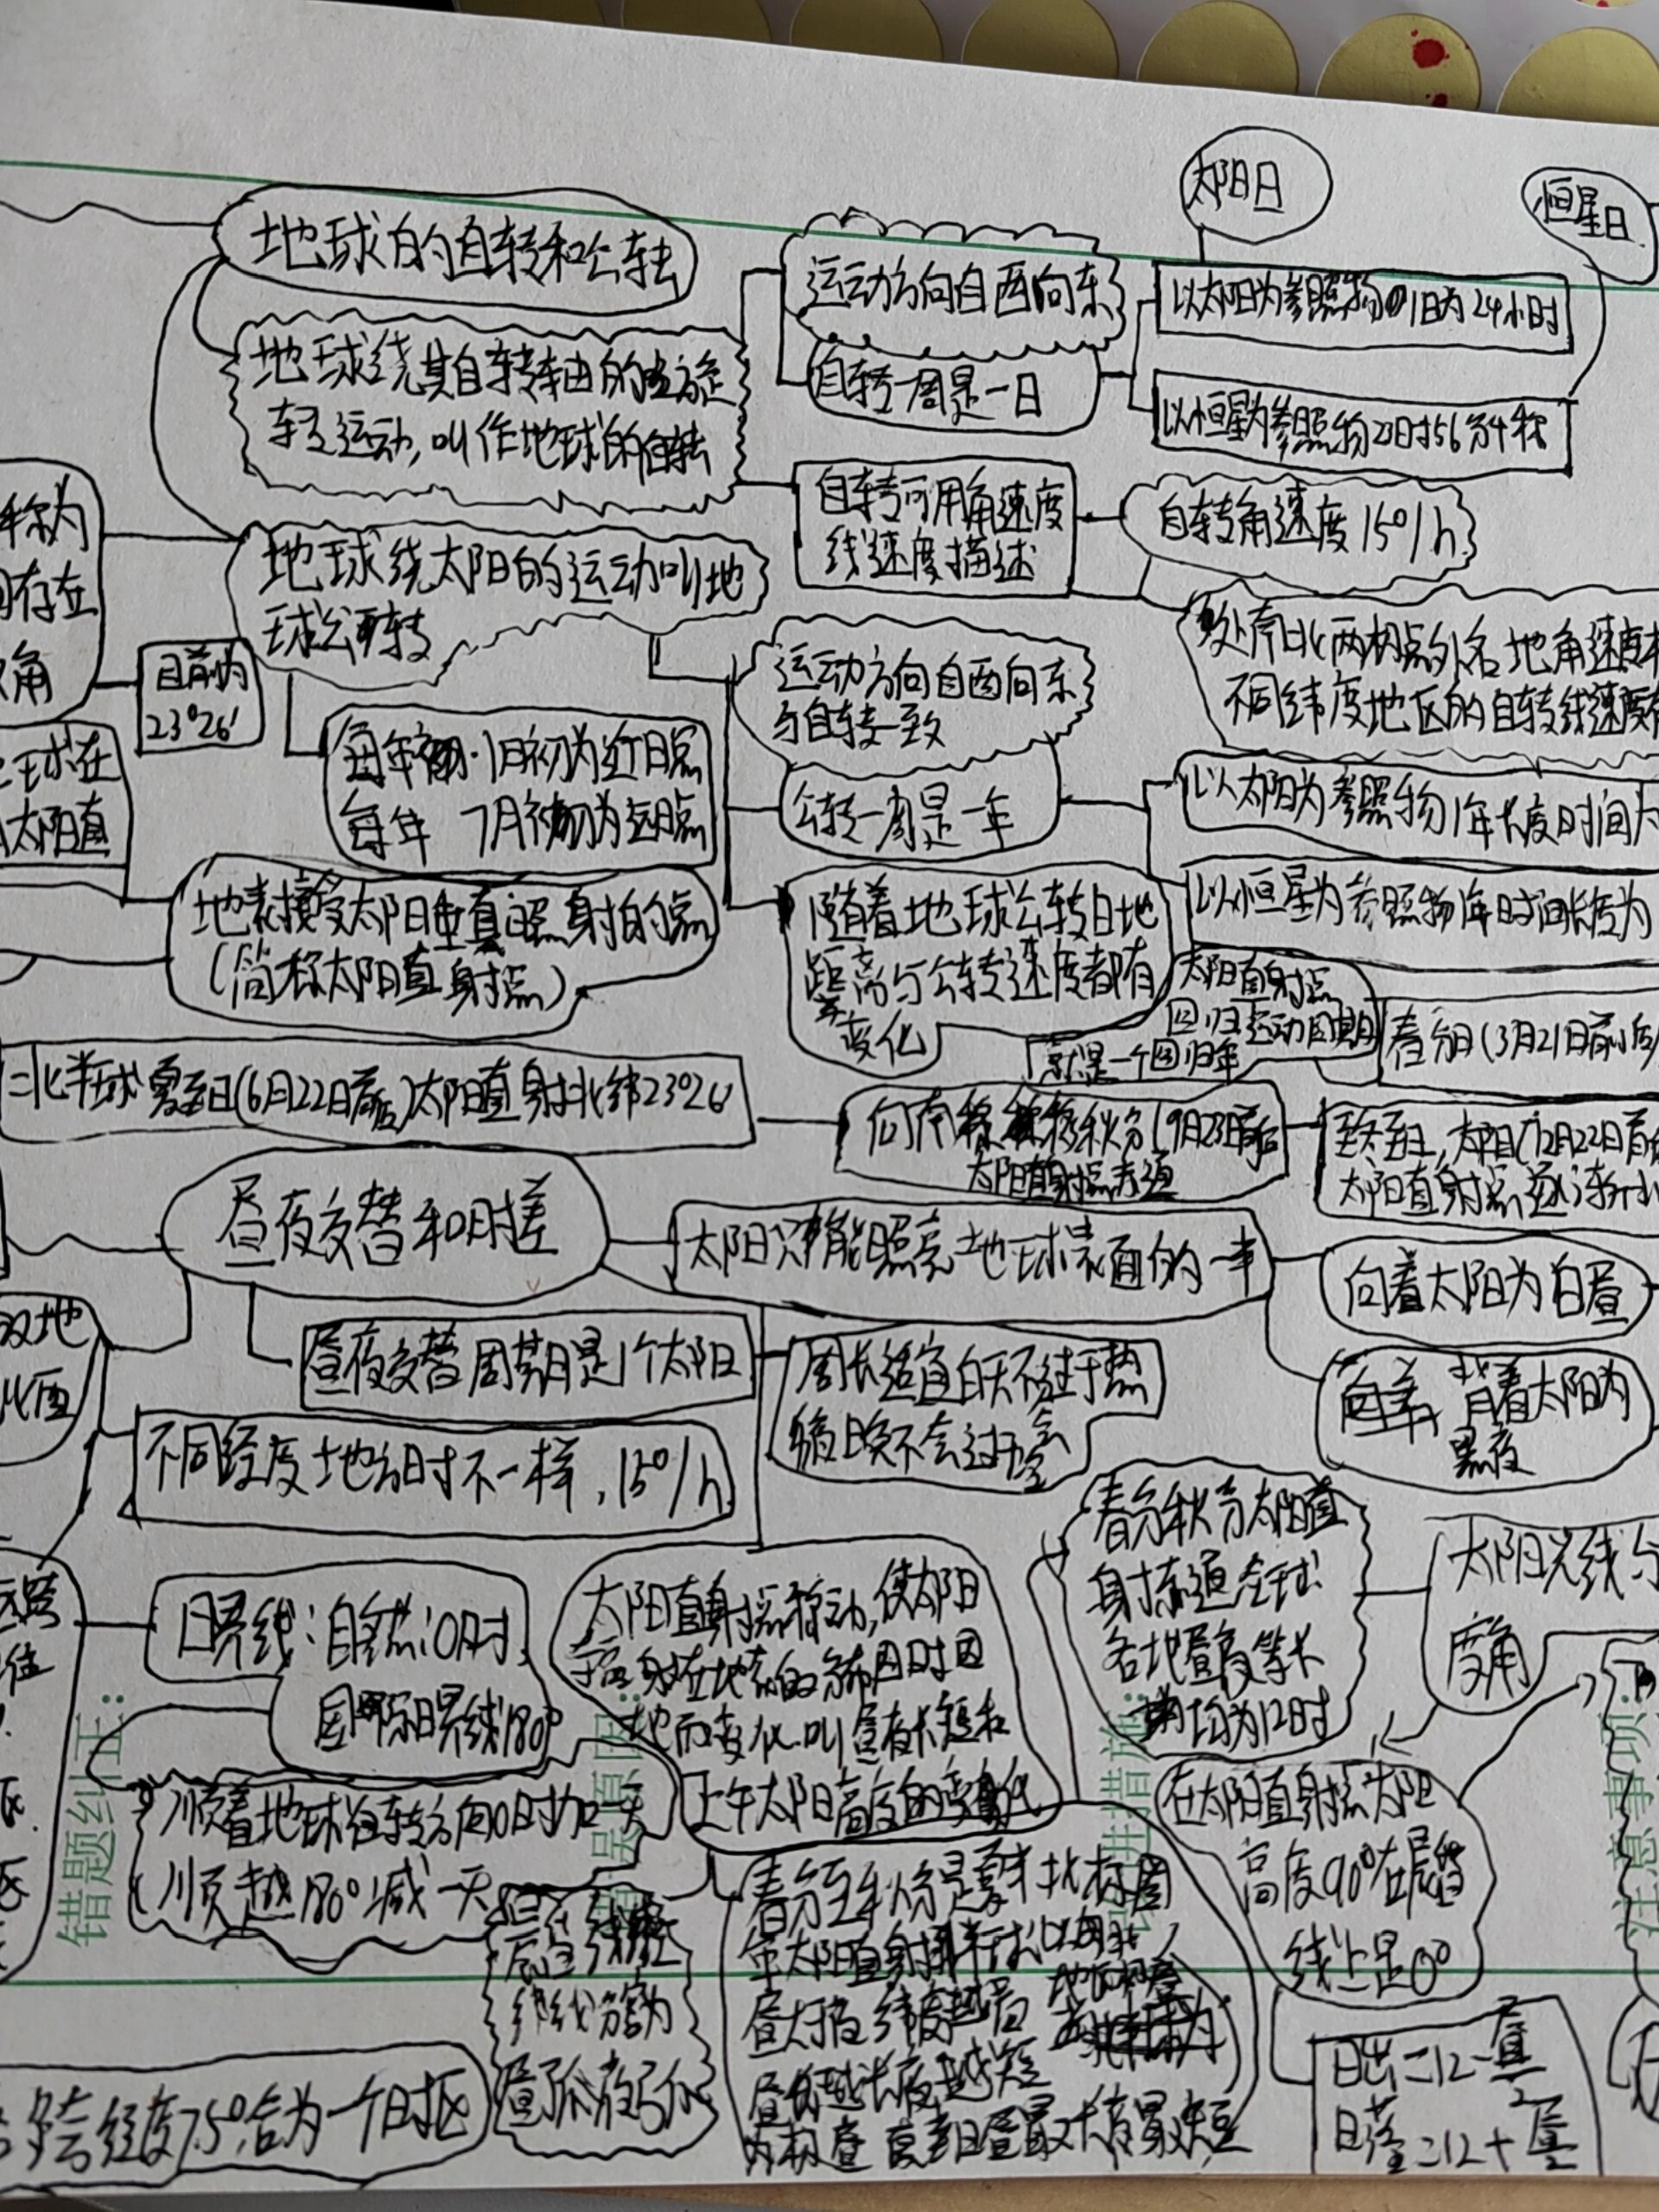 太阳日
恒星日
地球的自转和公转
运动方向自西向东
以太阳为参照物1日为24小时
地球绕其自转轴的旋
转运动,叫作地球的自转
自转一周是一日
以恒星为参照物23时56分4秒
自转可用角速度
线速度描述
自转角速度15°/h
称为
存在
角
地球绕太阳的运动叫地
球公转
目前为
23°26′
运动方向自西向东
与自转一致
除南北两极点外各地角速度
不同纬度地区的自转线速度
每年 1月初为近日点
每年 7月初为远日点
公转一周是一年
以太阳为参照物1年长度时间为
以恒星为参照物1年时间长度为
球在
太阳直
地表接受太阳垂直照射的点
(简称太阳直射点)
随着地球公转日地
距离与公转速度都有
变化
太阳直射点
回归运动周期
就是一个回归年
春分日(3月21日前后)
北半球夏至日(6月22日前后)太阳直射北纬23°26′
向南移 秋分(9月23日前后
太阳直射点赤道
冬至日,太阳(12月22日前后
太阳直射点逐渐北
昼夜交替和时差
太阳只能照亮地球表面的一半
向着太阳为白昼
背着太阳为
黑夜
昼夜交替周期是1个太阳
周长适宜白天不过于热
晚不会过于
不同经度地方时不一样,15°/h
春分秋分太阳直
射赤道全球
各地昼夜等长
均为12时
太阳光线与
度角
日界线:自然:0时
国际日界线180°
太阳直射点移动,使太阳
辐射在地表的分布因时因
地而变化.叫昼夜长短和
上午太阳高度的变化
顺着地球自转方向0时加一天
顺越180°减一天
在太阳直射点太阳
高度90°在晨昏
线上是0°
晨昏线把
纬线分割为
昼弧夜弧
春分至秋分是夏半
年太阳直射北半球
昼大于夜 纬度越高
昼越长夜越短
夏至日昼最长夜最短
日出=12-昼/2
日落=12+昼/2
跨经度7.5°合为一个时区
错题纠正:
错误原因:
改进措施:
注意事项: